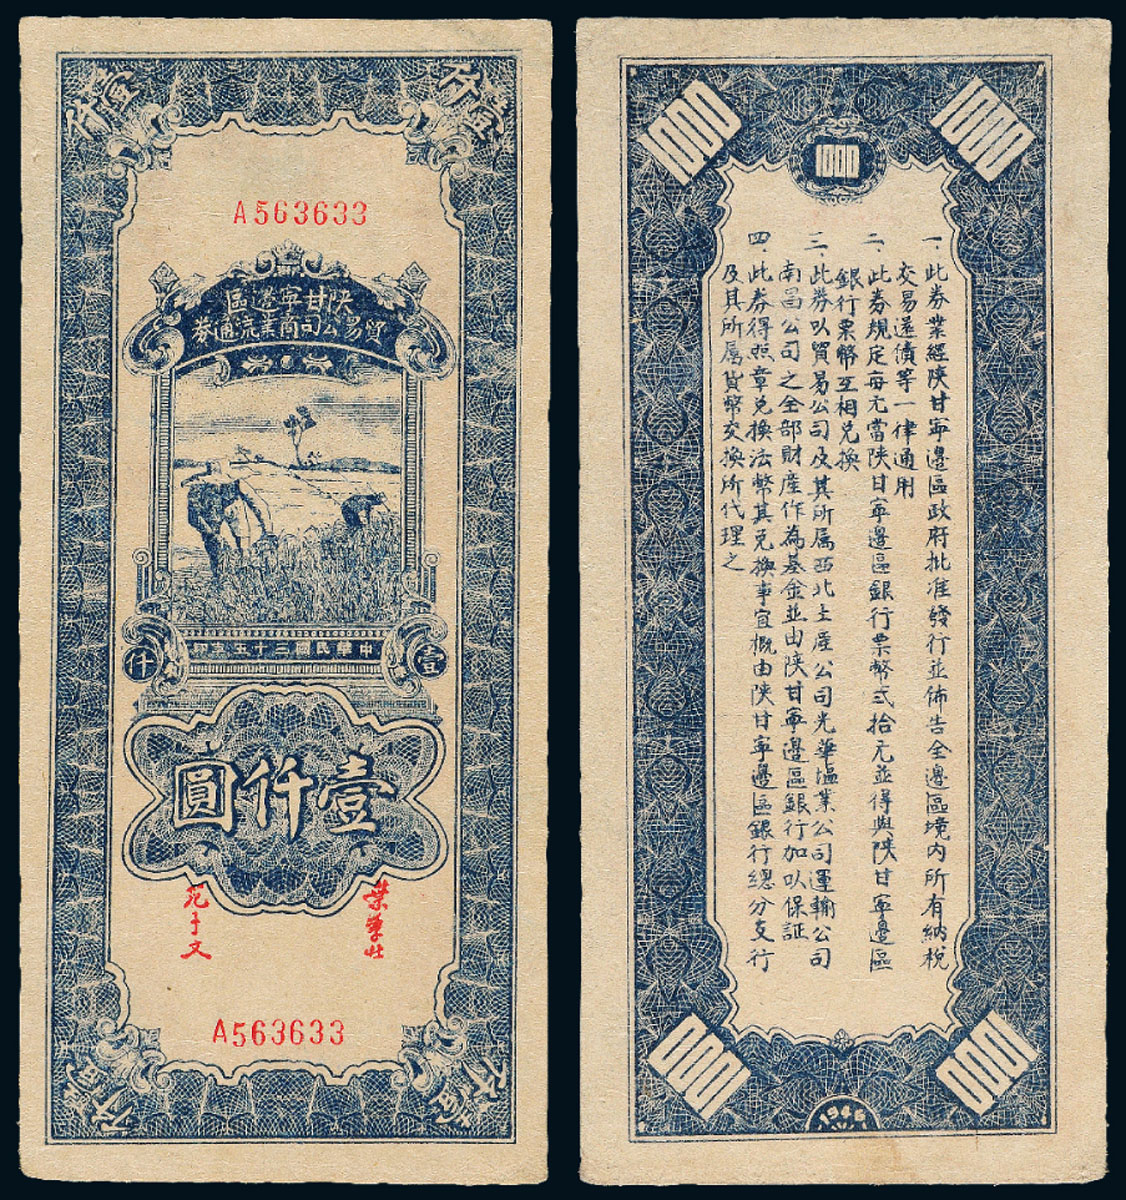 壹仟
壹仟
A563633
陝甘寧邊區
貿易公司商業流通券
中華民國三十五年印
壹
仟
壹仟圓
葉季壯
范子文
A563633
壹仟
壹仟
1000
1000
1000
一、此券業經陝甘寧邊區政府批准發行並佈告全邊區境內所有納稅
交易還債等一律通用
二、此券規定每元當陝甘寧邊區銀行票幣弍拾元並得與陝甘寧邊區
銀行票幣互相兌換
三、此券以貿易公司及其所屬西北土產公司光華塩業公司運輸公司
南昌公司之全部財產作為基金並由陝甘寧邊區銀行加以保証
四、此券得照章兌換法幣其兌換事宜概由陝甘寧邊區銀行總分支行
及其所屬貨幣交換所代理之
1000
1000
1946